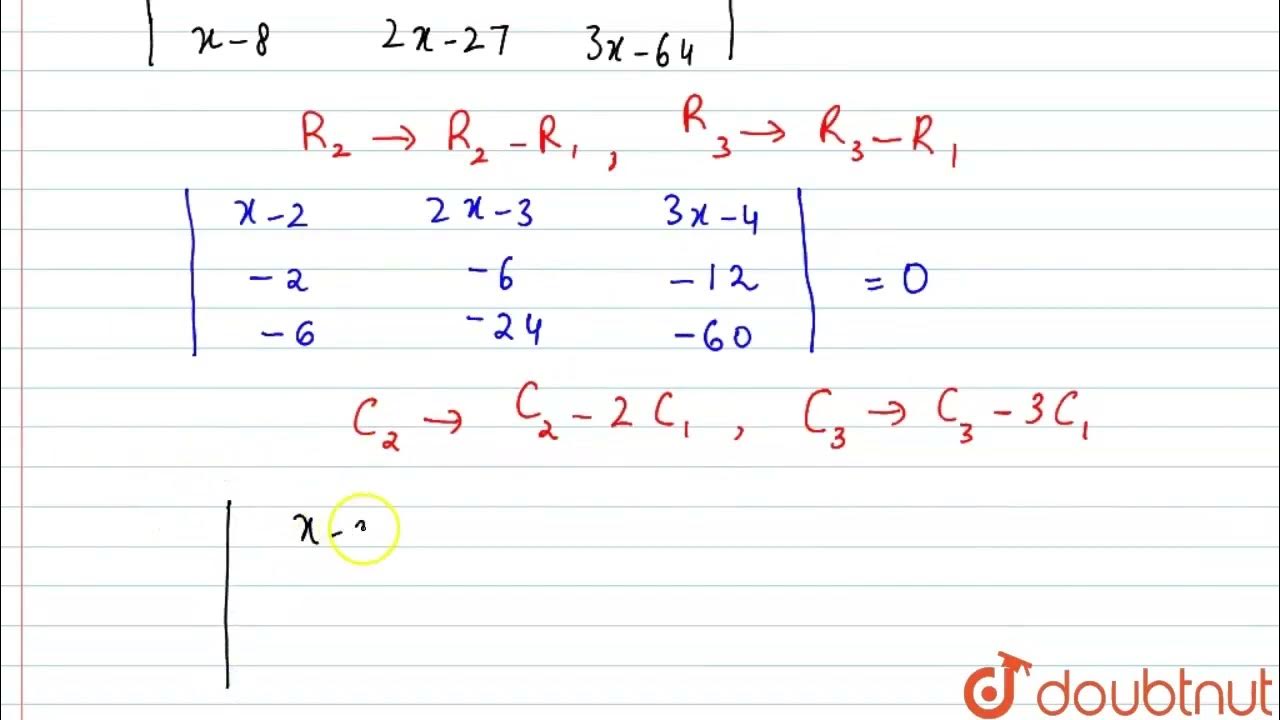 x-8 2x-27 3x-64
R₂ → R₂ - R₁ , R₃ → R₃ - R₁
x-2 2x-3 3x-4
-2 -6 -12 = 0
-6 -24 -60
C₂ → C₂ - 2C₁ , C₃ → C₃ - 3C₁
x -
doubtnut